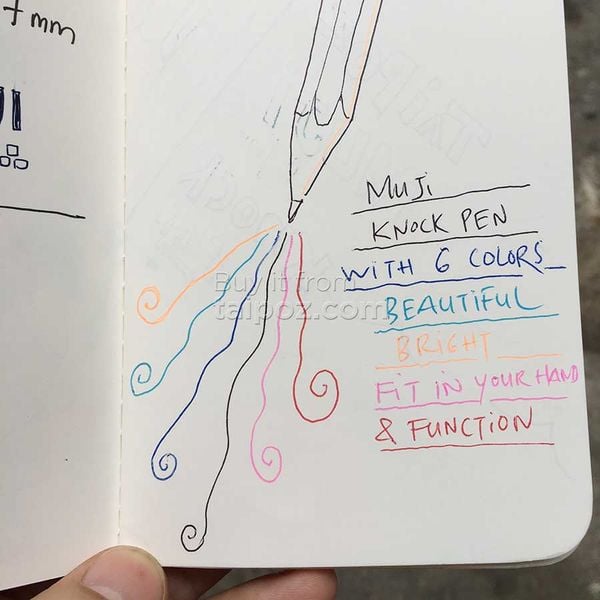 7 mm
MuJi
KNOCK PEN
WITH 6 COLORS
BEAUTIFUL
BRIGHT
FIT IN YOUR HAND
& FUNCTION
Buy it from
taipoz.com